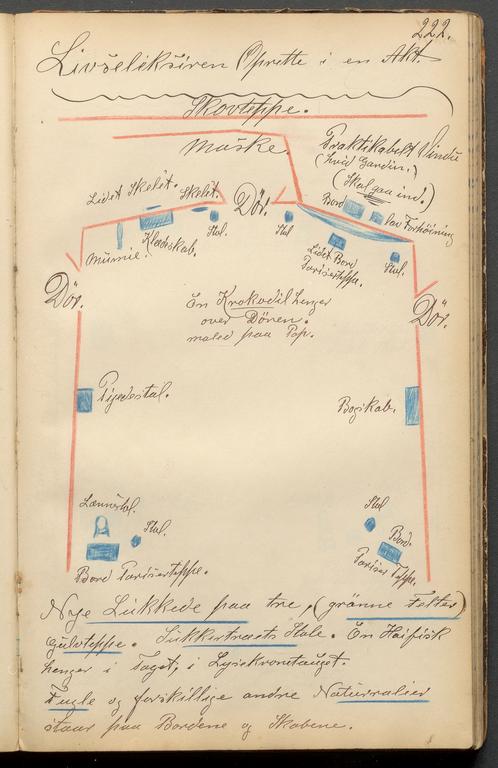 222.
Livseliksiren Oprette i en Akt.
Skovteppe.
Maske.
Praktikabelt Vindu
(hvid Gardin.)
(Skal gaa ind.)
Lidet Skelet. Skelet. Dör. Bord lav Forhöining
Mumie. Klædskab. Stol. Stol Lidet Bord Stol.
Pariserteppe.
Dör. Dör.
En Krokodil henger
over Dören.
maled paa Pap.
Pjedestal. Bogskab.
Lænestol. Stol
Stol. Bord.
Bord Parisertæppe. Pariser Tæppe.
Nye Lukkede paa tre, (grönne Felter)
Gulvteppe. Stole. En Haifisk
henger i Taget, i Lysekronetauget.
Fugle og forskillige andre Naturralier
staar paa Bordene og Skabene.